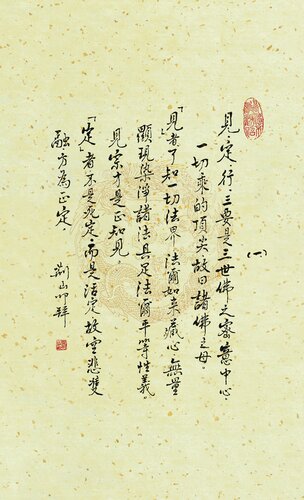 (一)
見定行三要是三世佛之密意中心
一切乘的頂尖故曰諸佛之母
「見」者了知一切法界法爾如来藏心無量
顯現染淨諸法具足法爾平等性義
見宗才是正知見
「定」者不是死定而是活定故空悲雙
融方為正定
叩拜